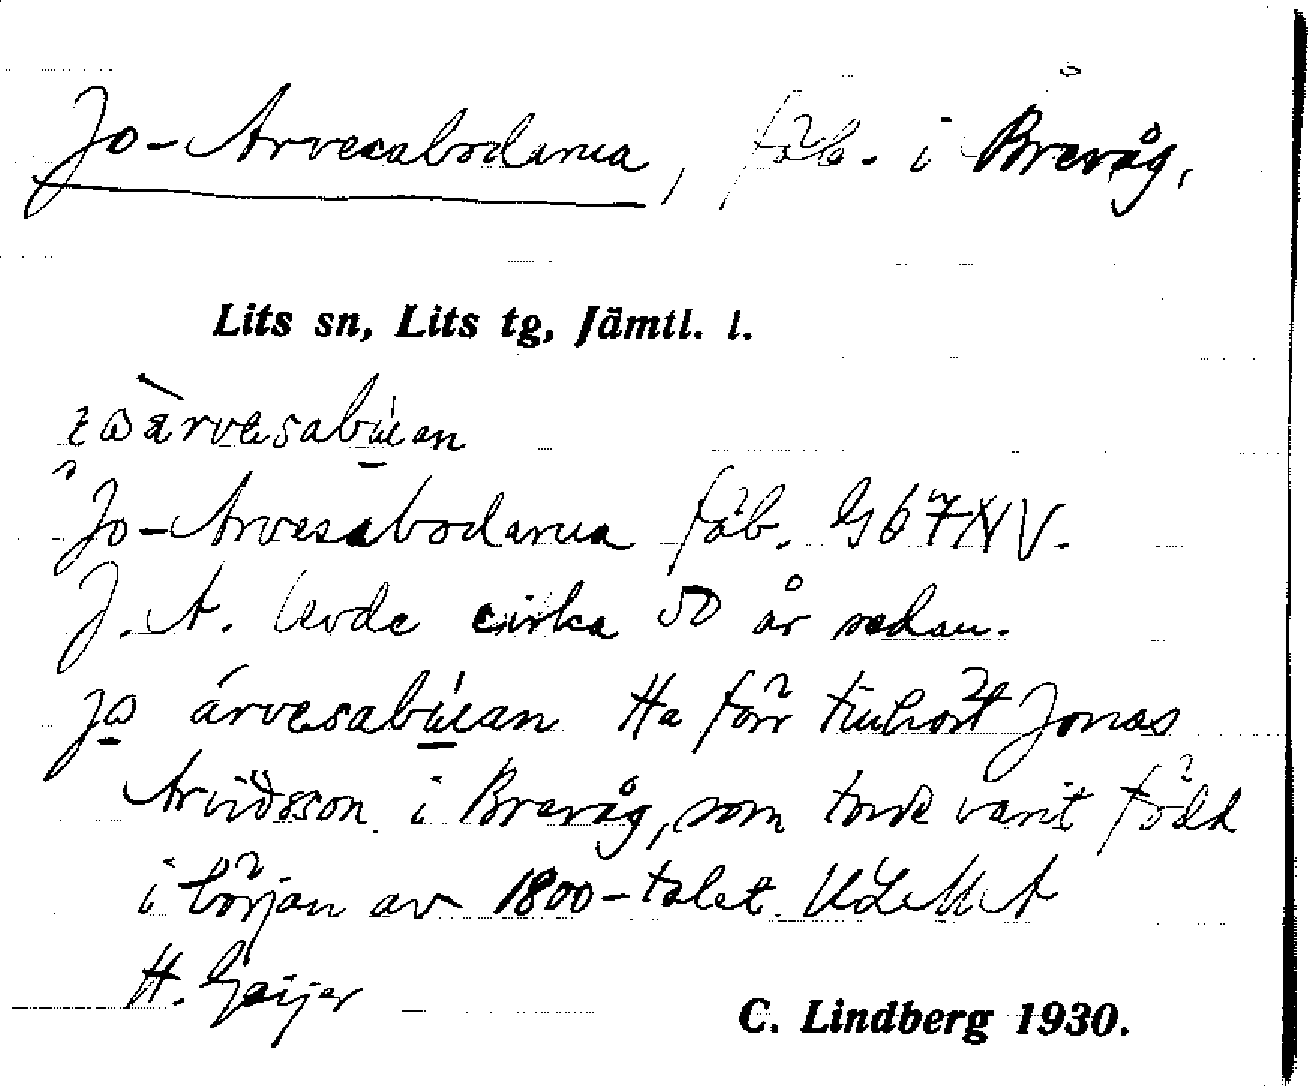 Jo-Arvesabodarna, fäb. i Brevåg,
Lits sn, Lits tg, Jämtl. l.
àrvesabúan
Jo-Arvesabodarna fäb. G67NV.
J. A. levde cirka 50 år sedan.
jo árvesabúan Ha förr tillhört Jonas
Arvidsson i Brevåg, som torde varit född
i början av 1800-talet. ULMA
H. Geijer
C. Lindberg 1930.